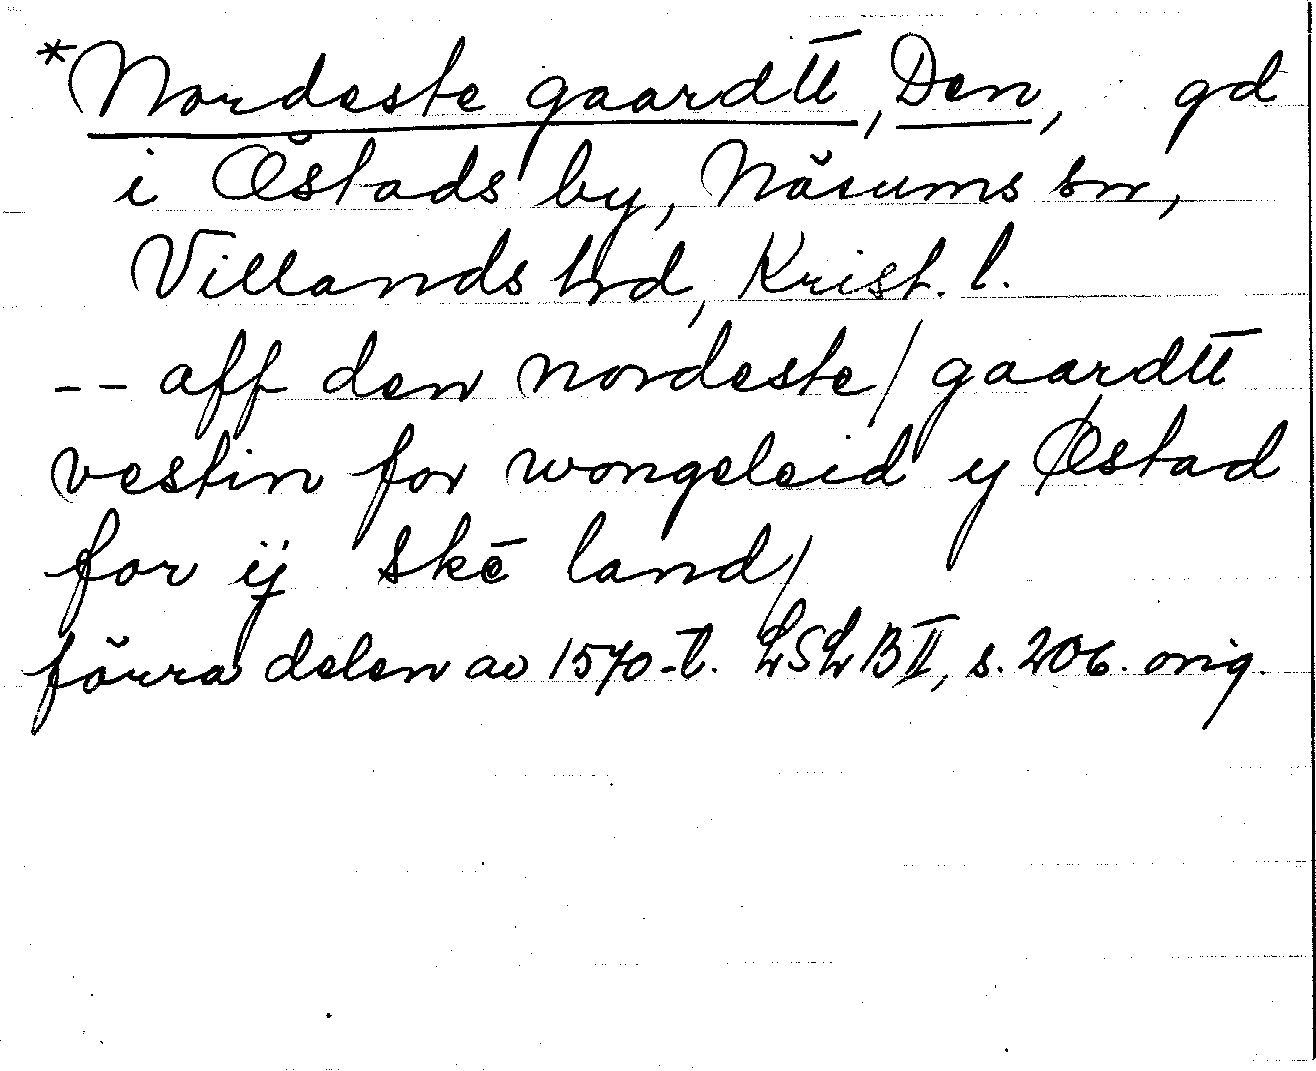 *Nordeste gaardtt, Den, gd
i Östads by, Näsums sn,
Villands hrd, Krist. l.
-- aff den nordeste/ gaardtt
vestin for wongeleid y Østad
for ij skē land/
förra delen av 1570-t. LSLB II, s. 206. orig.